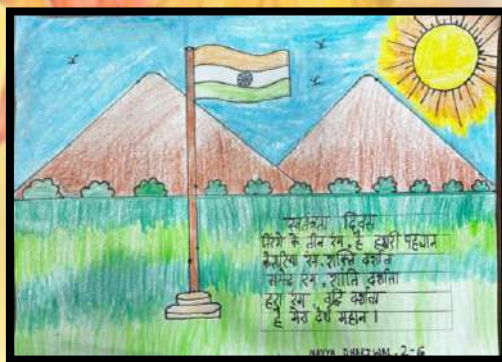 स्वतंत्रता दिवस
तिरंगे के तीन रंग, है हमारी पहचान
केसरिया रंग, शक्ति दर्शाता
सफेद रंग, शांति दर्शाता
हरा रंग वृद्धि दर्शाता
है मेरा देश महान।
NAVYA DHARIWAL, 2-G